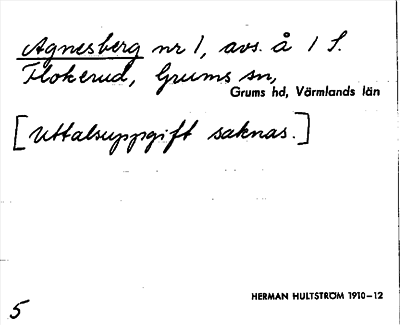 Agnesberg nr 1, avs. å 1 S.
Flokerud, Grums sn,
Grums hd, Värmlands län
[Uttalsuppgift saknas.]
HERMAN HULTSTRÖM 1910–12
5